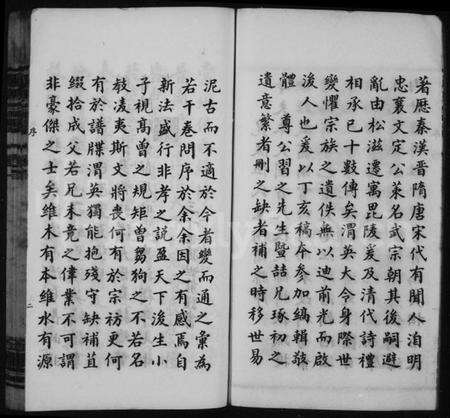 著歷秦漢晉隋唐宋代有聞人洎明
忠襄文定公萊名武宗朝其後嗣避
亂由松滋遷寓毘陵爰及清代詩禮
相承已十數傳矣渭英大令身際世
變懼宗族之遺佚無以迪前光而啟
後人也爰以丁亥稿本參加編輯族
體尊公習之先生暨喆兄琢初之
遺意繁者刪之缺者補之時移世易
泥古而不適於今者變而通之彙為
若干卷問序於余余因之有感焉自
新法盛行非孝之說盈天下後生小
子視高曾之規矩曾芻狗之不若名
敎凌夷斯文將喪何有於宗祊更何
有於譜牒渭英獨能抱殘守缺補苴
綴拾成父若兄未竟之偉業不可謂
非豪傑之士矣維木有本維水有源
序
二